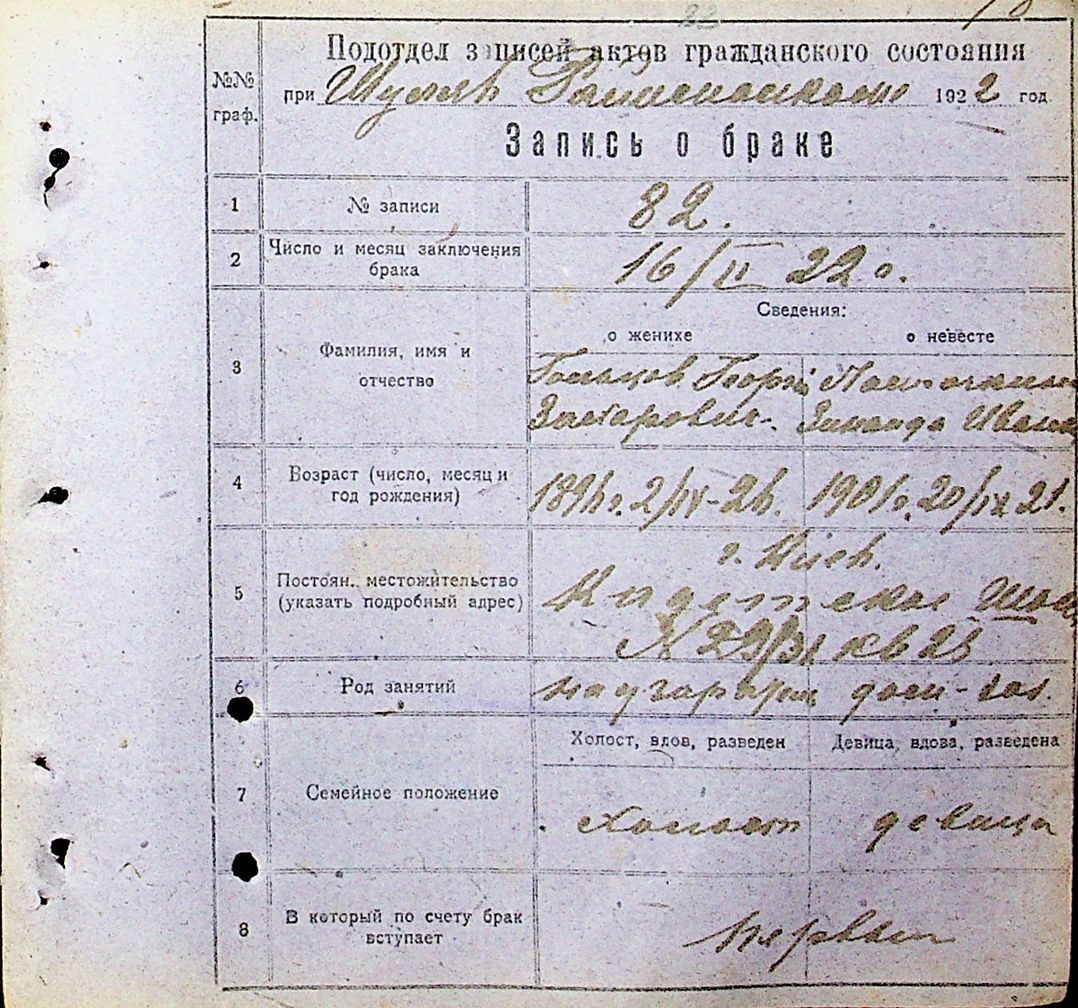 №№ граф.
Подотдел записей актов гражданского состояния
при Шуляв. 1922 год
Запись о браке
1 № записи 82.
2 Число и месяц заключения брака 16/II 22 г.
Сведения:
о женихе о невесте
3 Фамилия, имя и отчество
Георгій
Захарович. Зинаида Иван
4 Возраст (число, месяц и год рождения) 2/IV 1901 г. 20/IX 21.
5 Постоян. местожительство (указать подробный адрес)
г. Киев.
Кадетское Шос
№ 29/31 кв 25
6 Род занятий дом-
Холост, вдов, разведен Девица, вдова, разведена
7 Семейное положение Холост девица
8 В который по счету брак вступает первый